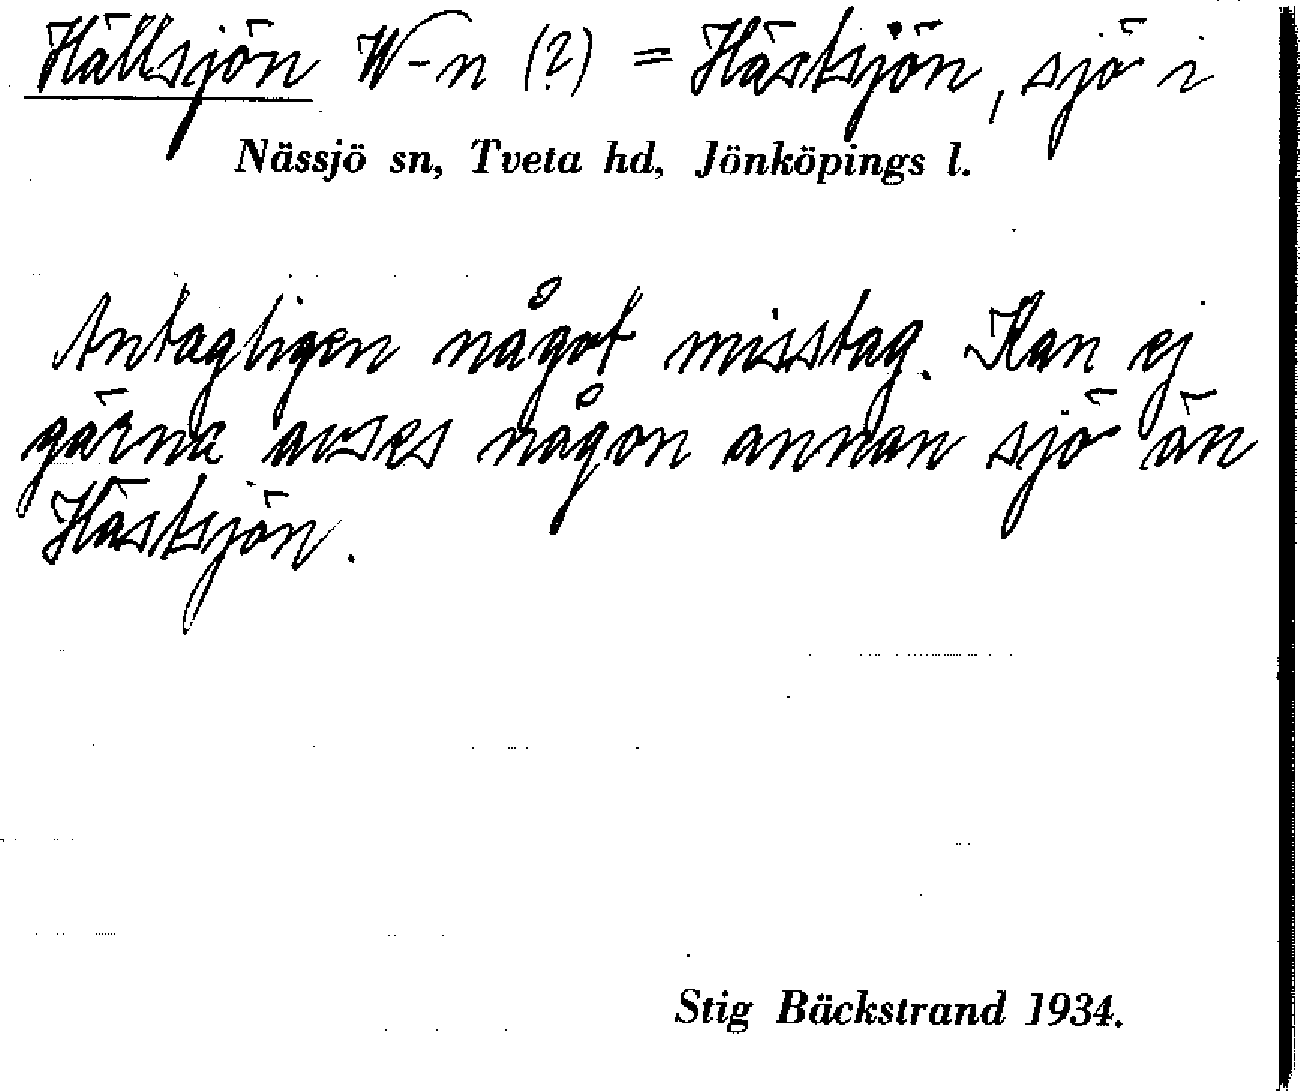 Hällsjön W-n (?) = Hästsjön, sjö i
Nässjö sn, Tveta hd, Jönköpings l.
Antagligen något misstag. Kan ej
gärna avses någon annan sjö än
Hästsjön.
Stig Bäckstrand 1934.